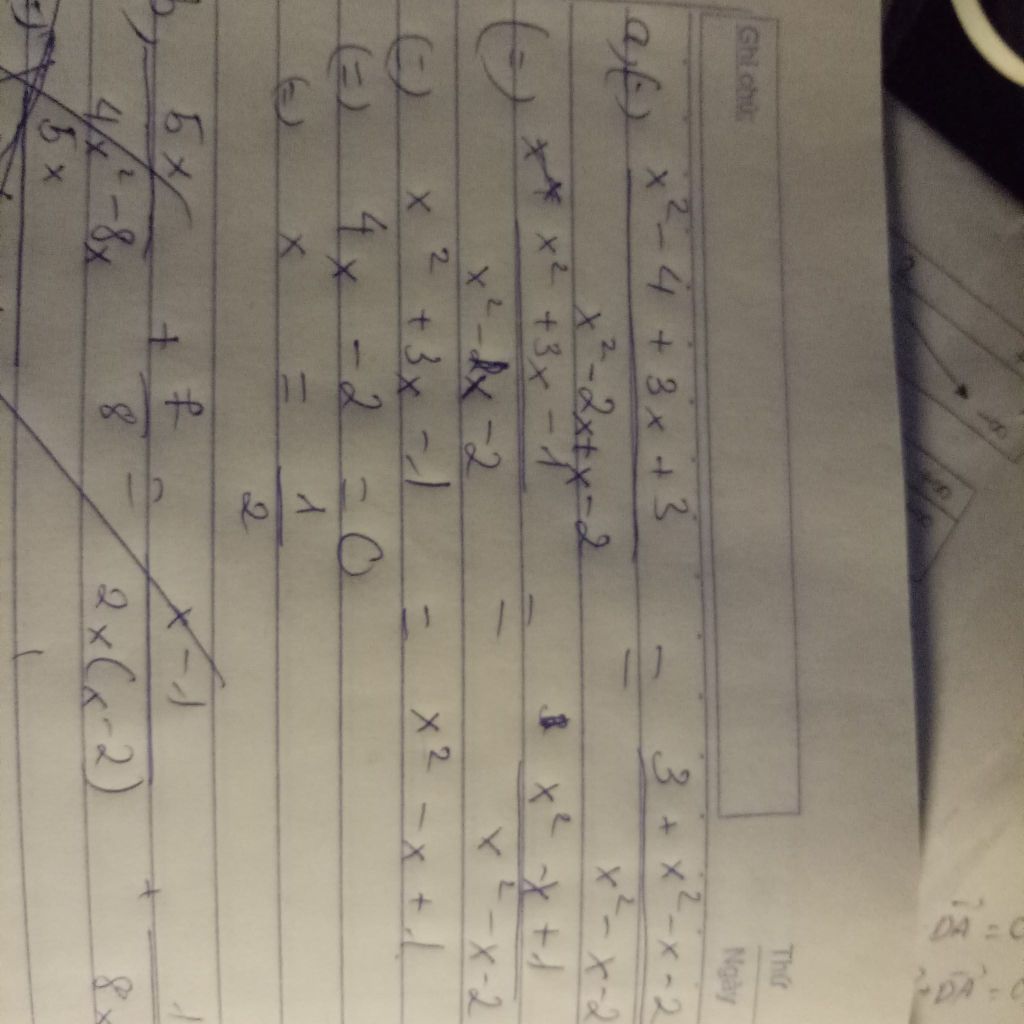 Ghi chú:
Thứ
Ngày
a, (=) x² - 4 + 3x + 3 / x² - 2x + x - 2 = 3 + x² - x - 2 / x² - x - 2
(=) x² + 3x - 1 / x² - x - 2 = x² - x + 1 / x² - x - 2
(=) x² + 3x - 1 = x² - x + 1
(=) 4x - 2 = 0
(=) x = 1 / 2
5x / 4x² - 8x + 7 / 8 = x - 1 / 2x(x - 2) + 1 / 8x
5x
-∞
DA = 0
+ DA = 0